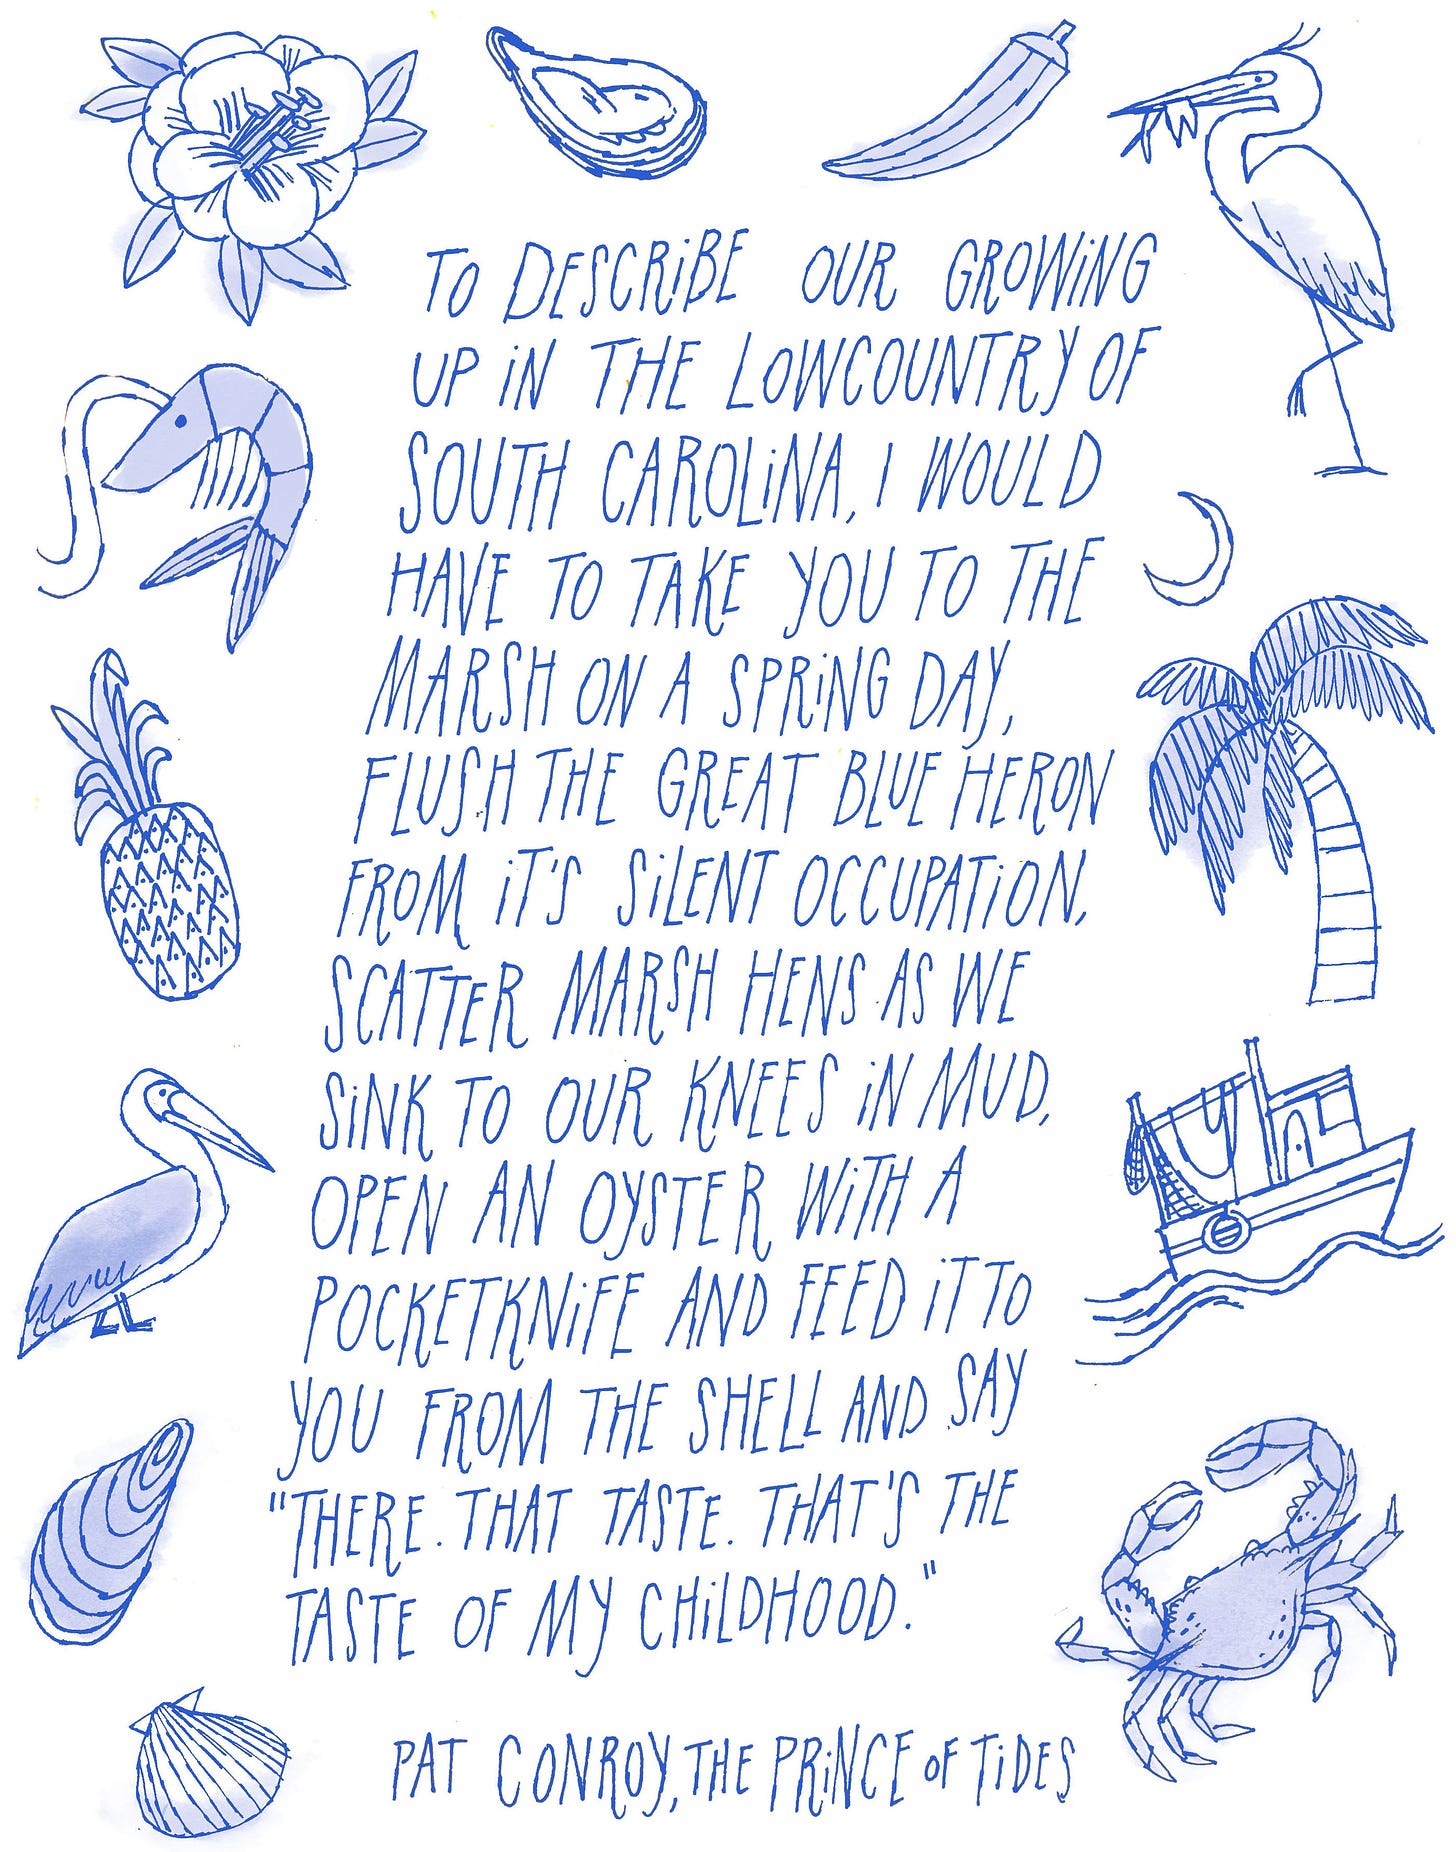 TO DESCRiBE OUR GROWiNG
UP iN THE LOWCOUNTRY OF
SOUTH CAROLiNA, I WOULD
HAVE TO TAKE YOU TO THE
MARSH ON A SPRiNG DAY,
FLUSH THE GREAT BLUE HERON
FROM iT'S SiLENT OCCUPATiON,
SCATTER MARSH HENS AS WE
SiNK TO OUR KNEES iN MUD,
OPEN AN OYSTER WiTH A
POCKETKNiFE AND FEED iT TO
YOU FROM THE SHELL AND SAY
"THERE. THAT TASTE. THAT'S THE
TASTE OF MY CHiLDHOOD."
PAT CONROY, THE PRiNCE OF TiDES